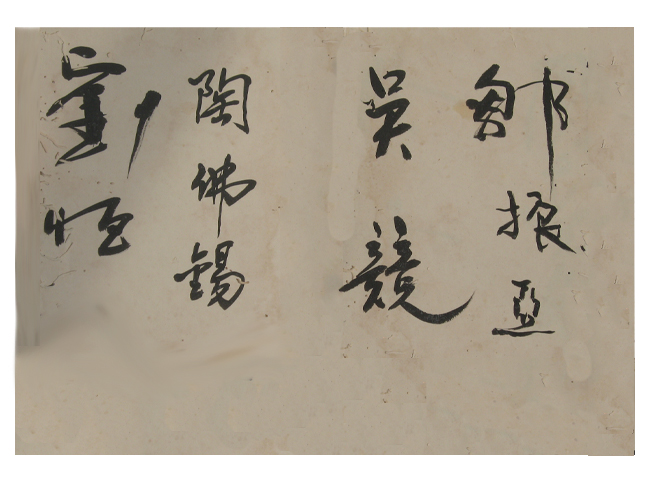 鄒振亞
吳競
陶佛錫
劉恒